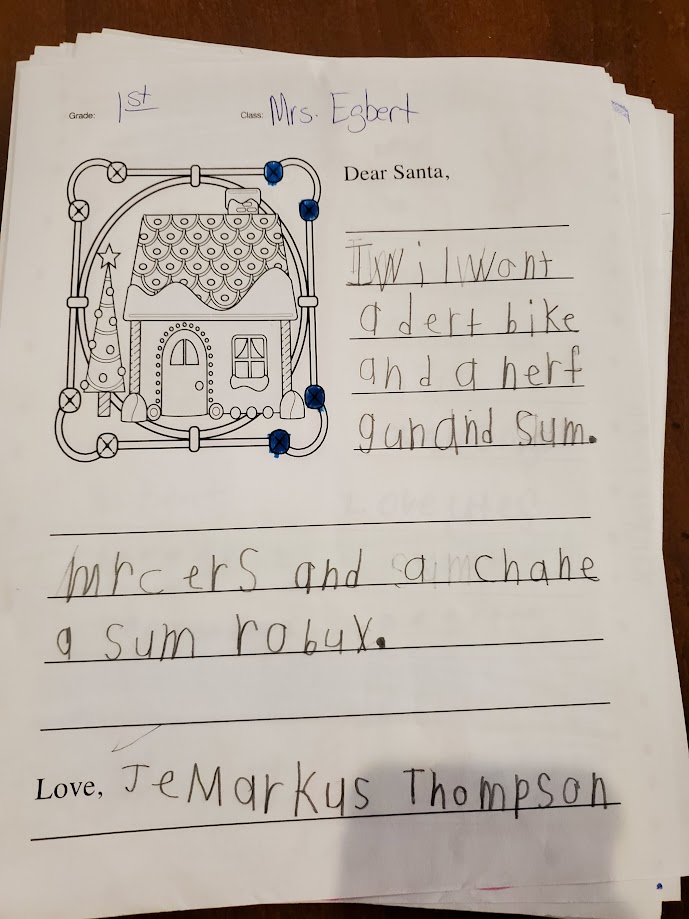 Grade: 1st Class: Mrs. Egbert
Dear Santa,
I wil want
a dert bike
and a nerf
gun and sum.
mrcers and a chane
a sum robux.
Love, JeMarkus Thompson